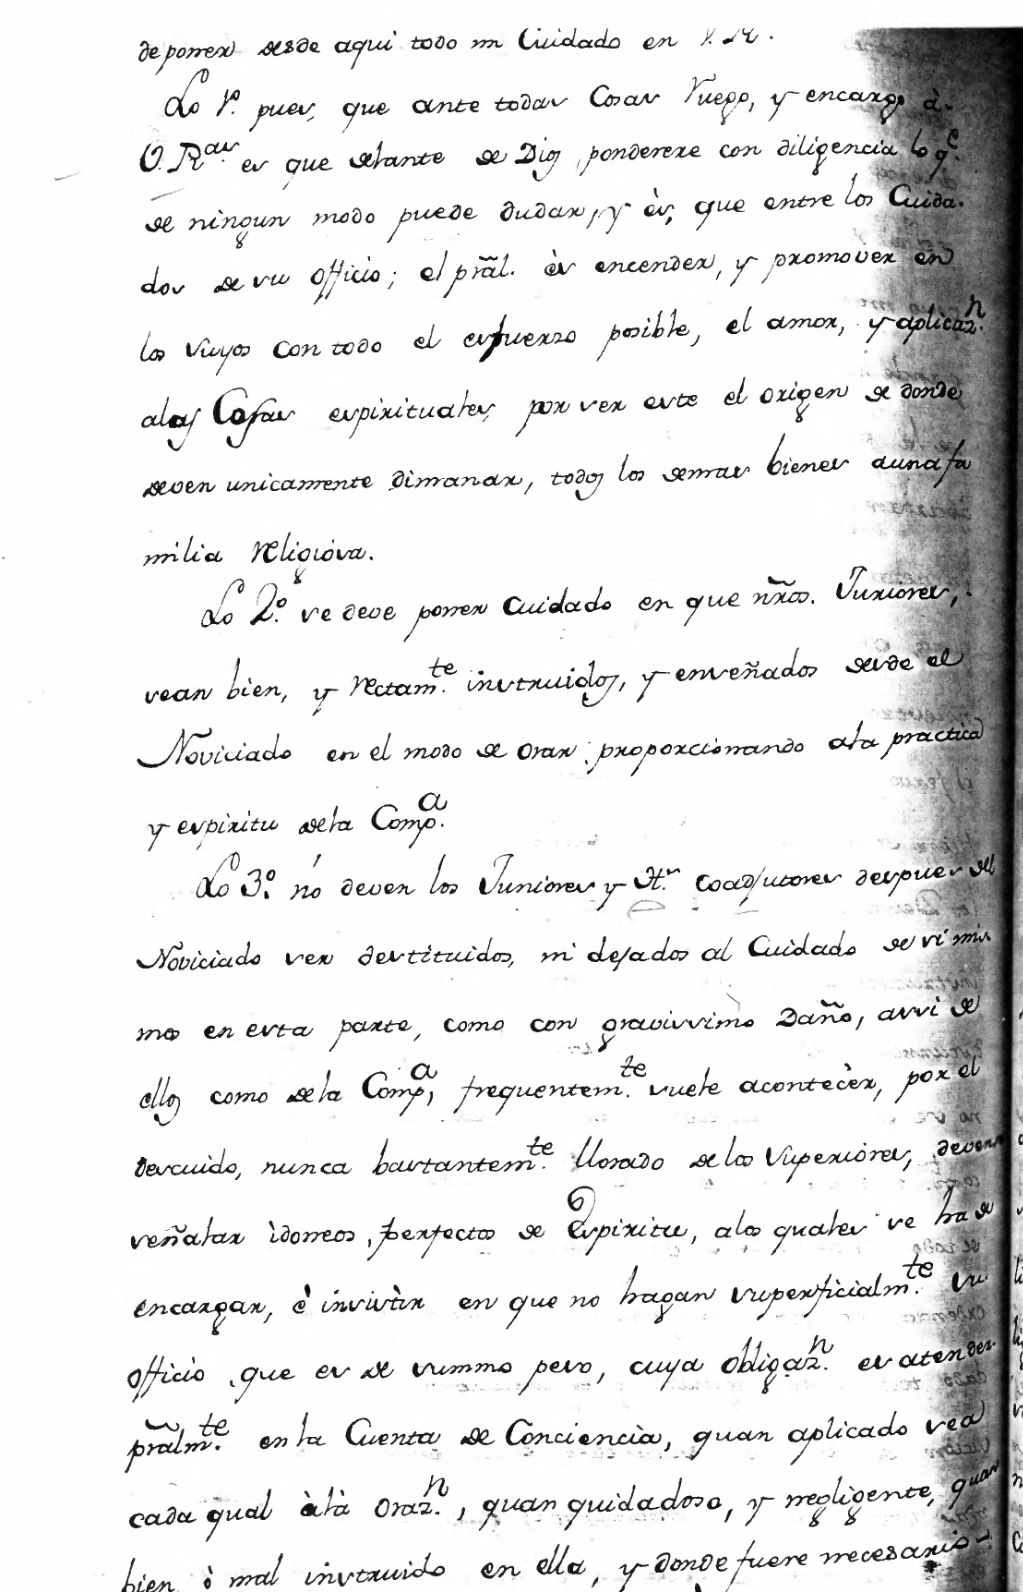 de poner desde aqui todo mi Cuidado en V. R.
Lo 1º pues, que ante todas Cosas Ruego, y encargo à
V. Ras. es que delante de Dios ponderere con diligencia lo qe.
de ningun modo puede dudar, y ès, que entre los Cuida-
dos de su officio; el prãl. ès encender, y promover en
los suyos con todo el esfuerzo posible, el amor, y aplicazn.
alas Cosas espirituales, por ser este el origen de donde
deven unicamente dimanar, todos los demas bienes auna fa
milia religiosa.
Lo 2º. se deve poner Cuidado en que nr̃os. Juniores,
sean bien, y rectamte. instruidos, y enseñados desde el
Noviciado en el modo de orar proporcionando ala practica
y espiritu dela Compa.
Lo 3º. no deven los Juniores y Hs. coadjutores despues del
Noviciado ser destituidos, ni dejados al Cuidado de si mis
mos en esta parte, como con gravissimo Daño, assi de
ellos como dela Compa, frequentemte. suele acontecèr, por el
descuido, nunca bastantemte. llorado de los Superiores, deven
señalar idoneos, perfectos de Espiritu, alos quales se ha de
encargar, è insistir en que no hagan superficialmte. su
officio que es de summo peso, cuya obligazn. es atender
prãlmte. en la Cuenta de Conciencia, quan aplicado sea
cada qual àlà orazn., quan quidadoso, y negligente, quan
bien, ò mal instruido en ella, y donde fuere necesario